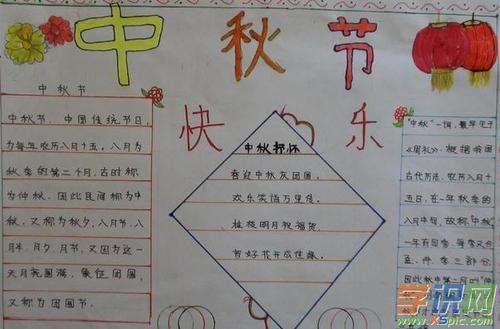 中秋节
快乐
中秋节
中秋节，中国传统节日，
为每年农历八月十五，八月为
秋季的第二个月，古时称
为仲秋，因此民间称为中
秋，又称为秋夕，八月节，八
月半，月夕，月节，又因为这一
天月亮圆满，象征团圆，
又称为团圆节。
中秋抒怀
喜迎中秋友团圆，
欢乐笑语万里传。
桂枝明月祝福贺，
首好花开成佳缘。
"中秋"一词，最早见于
《周礼》，根据我国
古代历法，农历八月十
五日，在一年秋季的
八月中旬，故称"中秋"
一年有四季，每季又分
孟、仲、季三部分，
因此秋中第二月叫"仲
学识网
www.XSpic.com